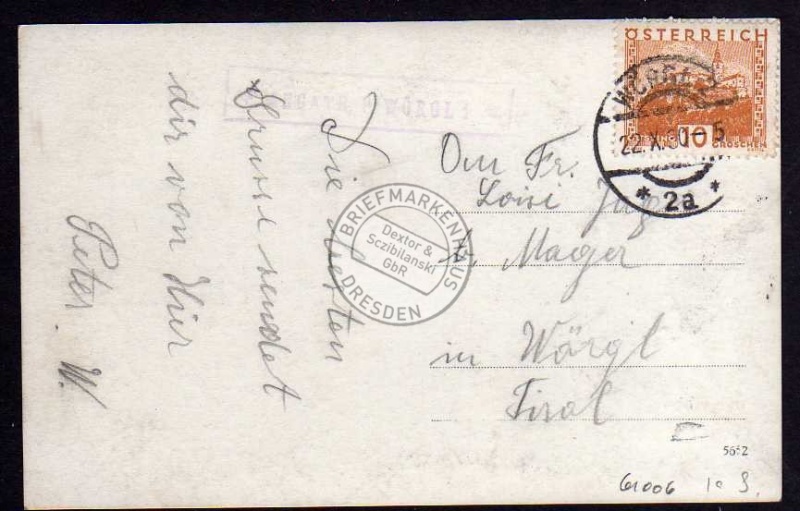 ÖSTERREICH
10
GROSCHEN
WÖRGL
22.X.30-5
* 2a *
Die besten
Grüsse sendet
dir von Hier
Peter. W.
An Fr.
Loisi
b, Mager
in Wörgl
Tirol
BRIEFMARKENHAUS
Dextor &
Sczibilanski
GbR
DRESDEN
5652
61006